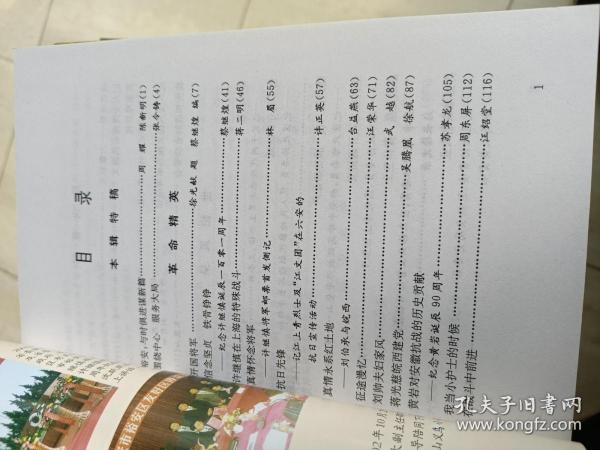 目　录
本 辑 特 稿
裕安:与时俱进谋新篇……周 耀 陈新明(1)
围绕中心 服务大局……张令铸(4)
革 命 精 英
开国将军……徐光献 题 蔡继煌 编(7)
信念坚贞 铁骨铮铮
——纪念许继慎诞辰一百零一周年……蔡继煌(41)
许继慎在上海的特殊战斗……蒋二明(46)
真情怀念将军
——许继慎将军邮票首发侧记……林 眉(55)
抗日先锋
——记江上青烈士及“江文团”在六安的
抗日宣传活动……许正英(57)
真情永系红土地
——刘伯承与皖西……台益燕(63)
征途漫忆……汪荣华(71)
刘帅夫妇家风……武 越(82)
蒋光慈皖西建党……吴腾凰 徐航(87)
黄岩对安徽抗战的历史贡献
——纪念黄岩诞辰 90 周年……苏孝龙(105)
我当小护士的时候……周东屏(112)
战斗中前进……江绍堂(116)
1
市裕安区友好
孔夫子旧书网